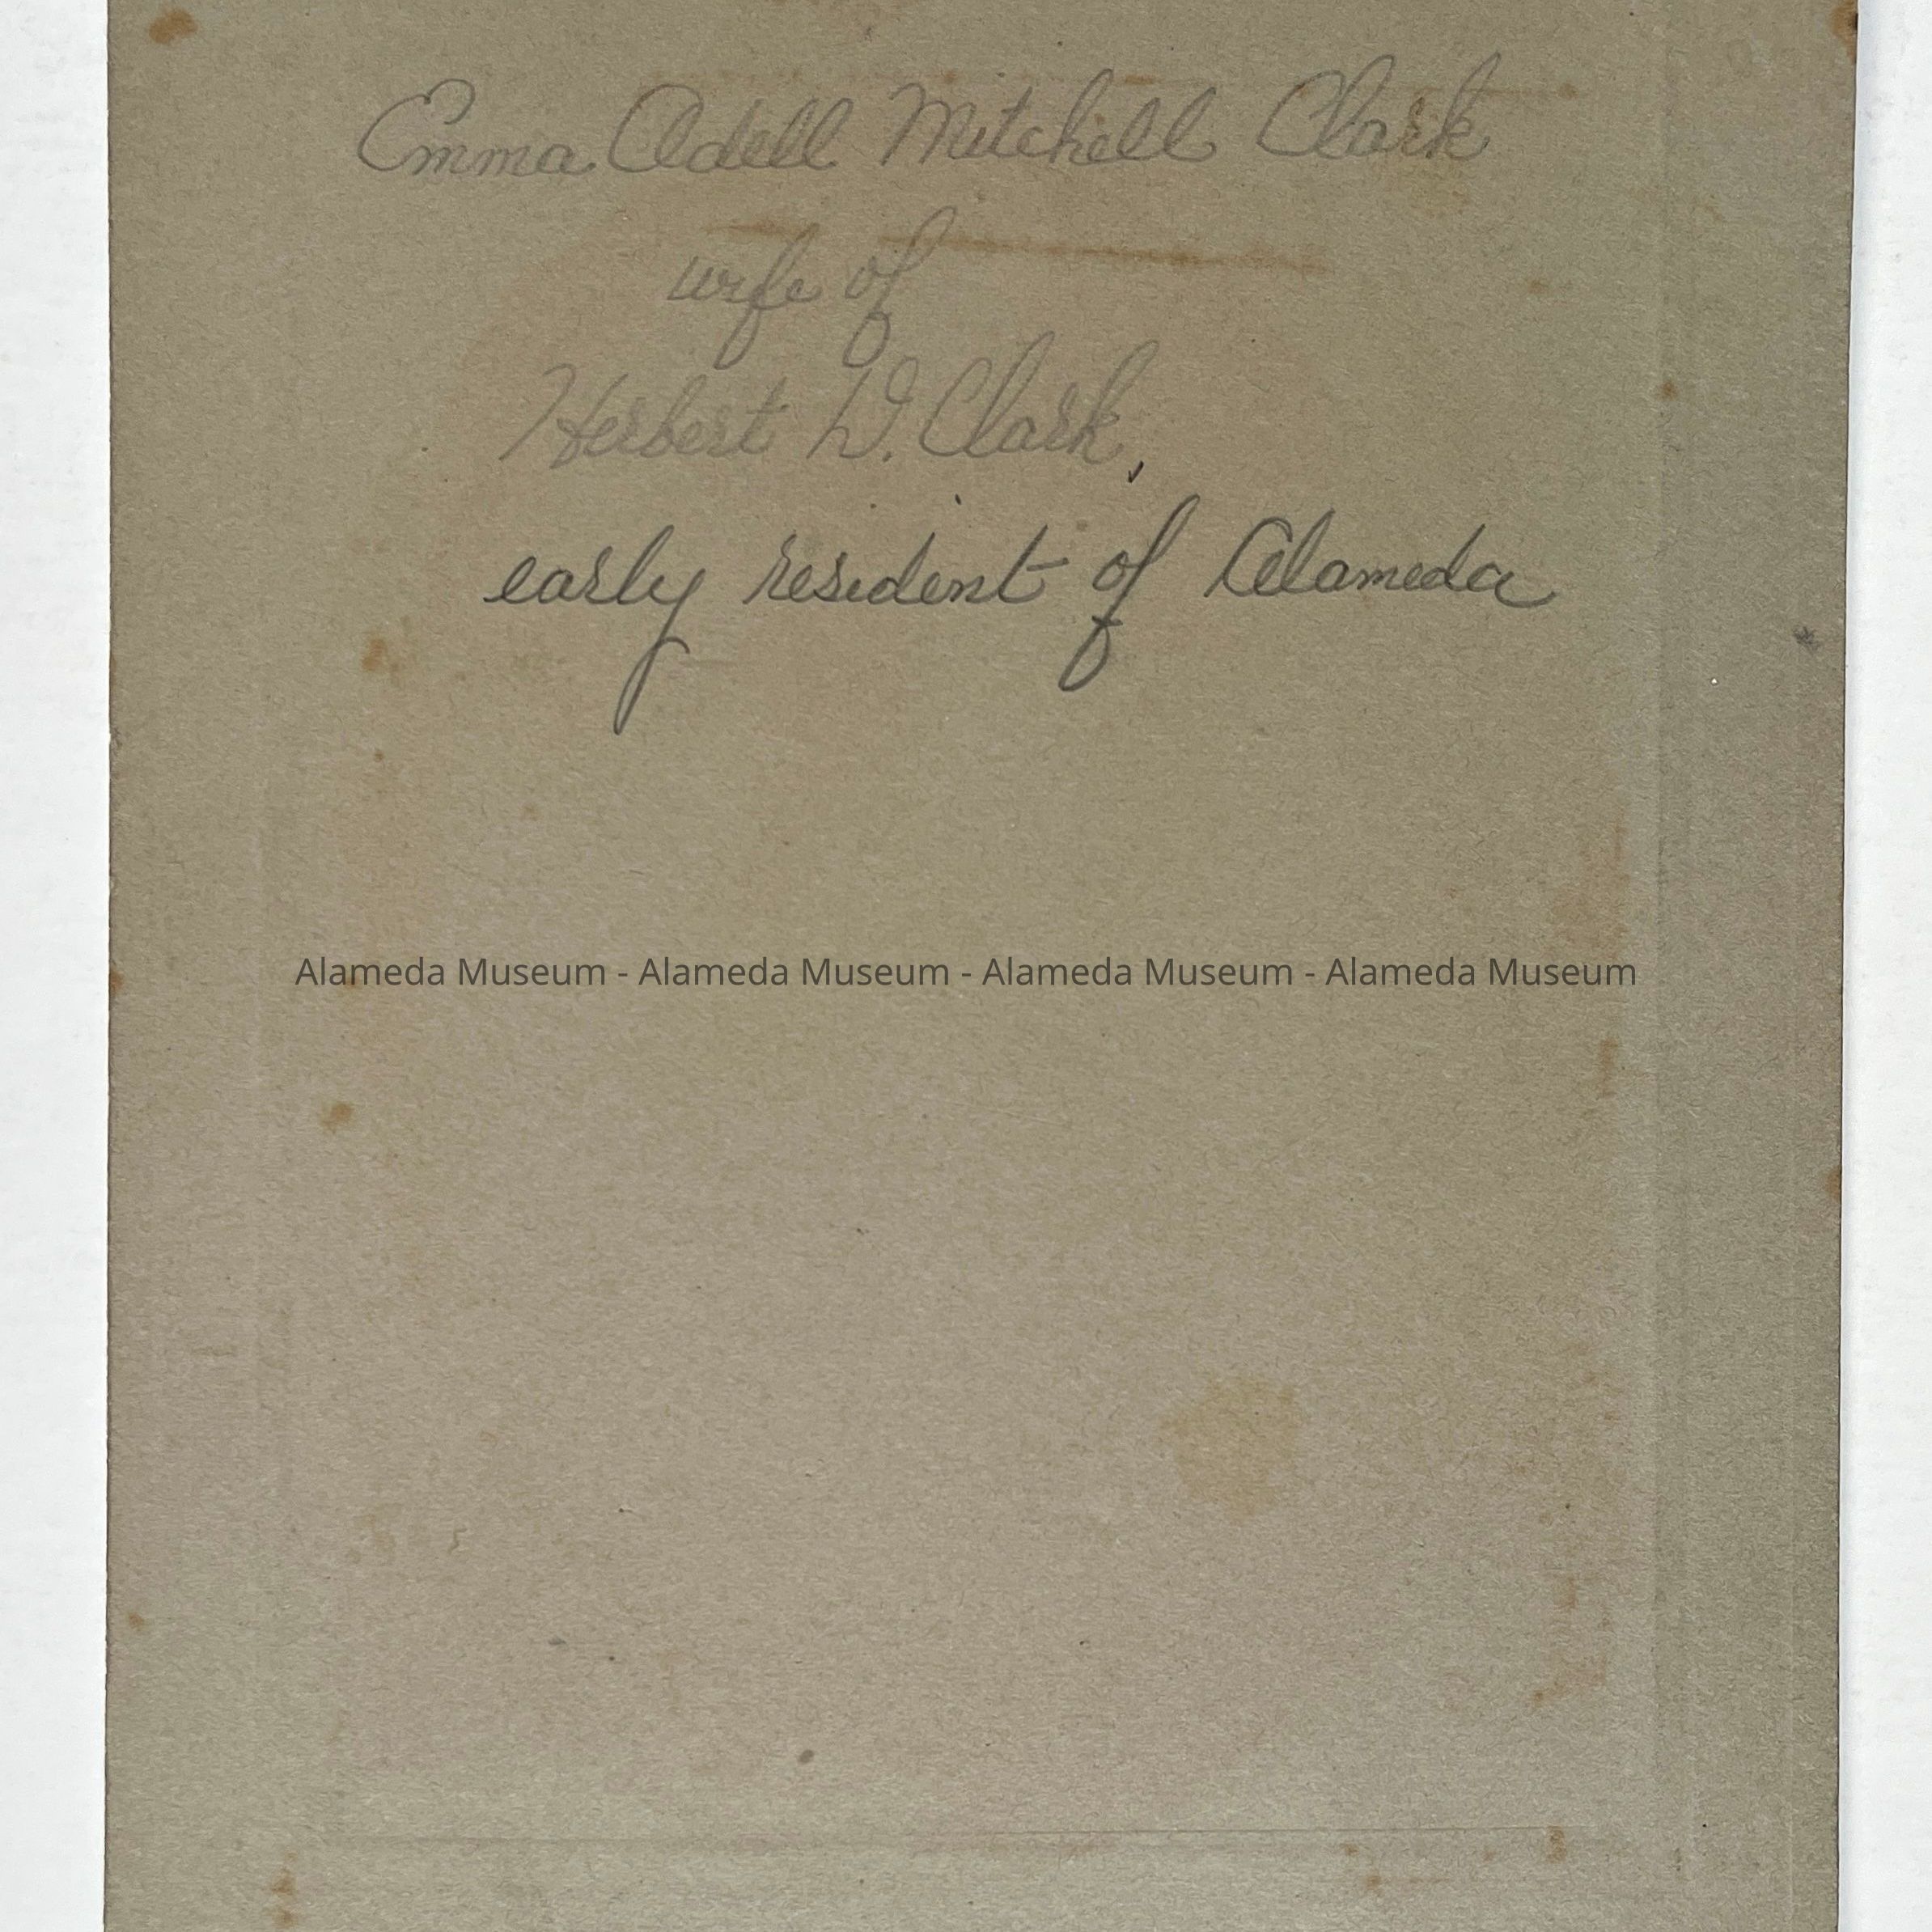 Emma Adell Mitchell Clark
wife of
Herbert D. Clark,
early resident of Alameda
Alameda Museum - Alameda Museum - Alameda Museum - Alameda Museum